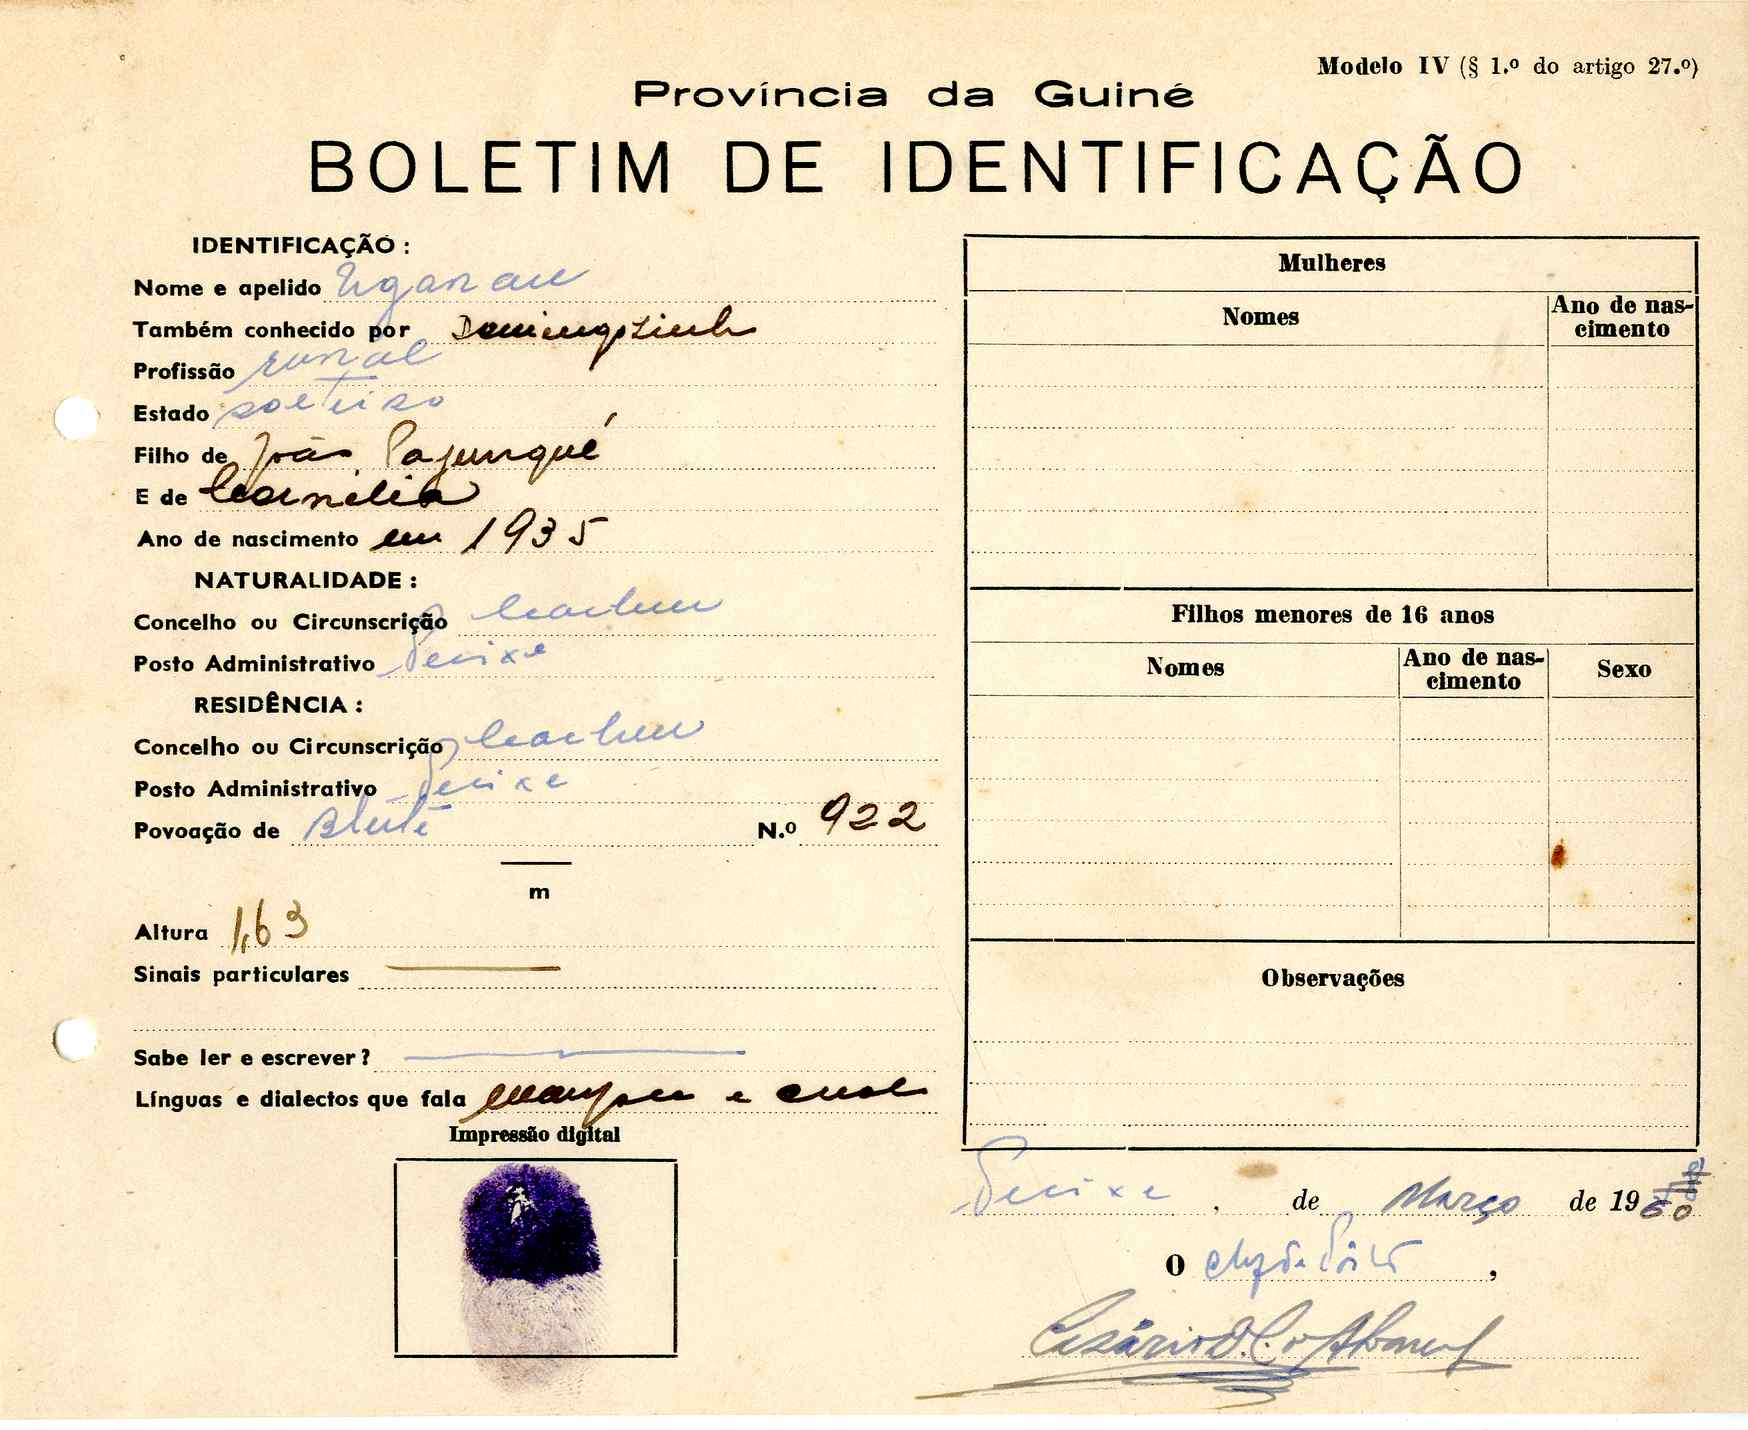 Modelo IV (§ 1.º do artigo 27.º)
Província da Guiné
BOLETIM DE IDENTIFICAÇÃO
IDENTIFICAÇÃO :
Nome e apelido
Também conhecido por
Profissão rural
Estado solteiro
Filho de João
E de
Ano de nascimento em 1935
NATURALIDADE :
Concelho ou Circunscrição Cacheu
Posto Administrativo Pecixe
RESIDÊNCIA :
Concelho ou Circunscrição Cacheu
Posto Administrativo Pecixe
Povoação de N.º 922
m
Altura 1,63
Sinais particulares
Sabe ler e escrever ?
Línguas e dialectos que fala e
Impressão digital
Mulheres
Nomes
Ano de nascimento
Filhos menores de 16 anos
Nomes
Ano de nascimento
Sexo
Observações
Pecixe , de Março de 19
O
,